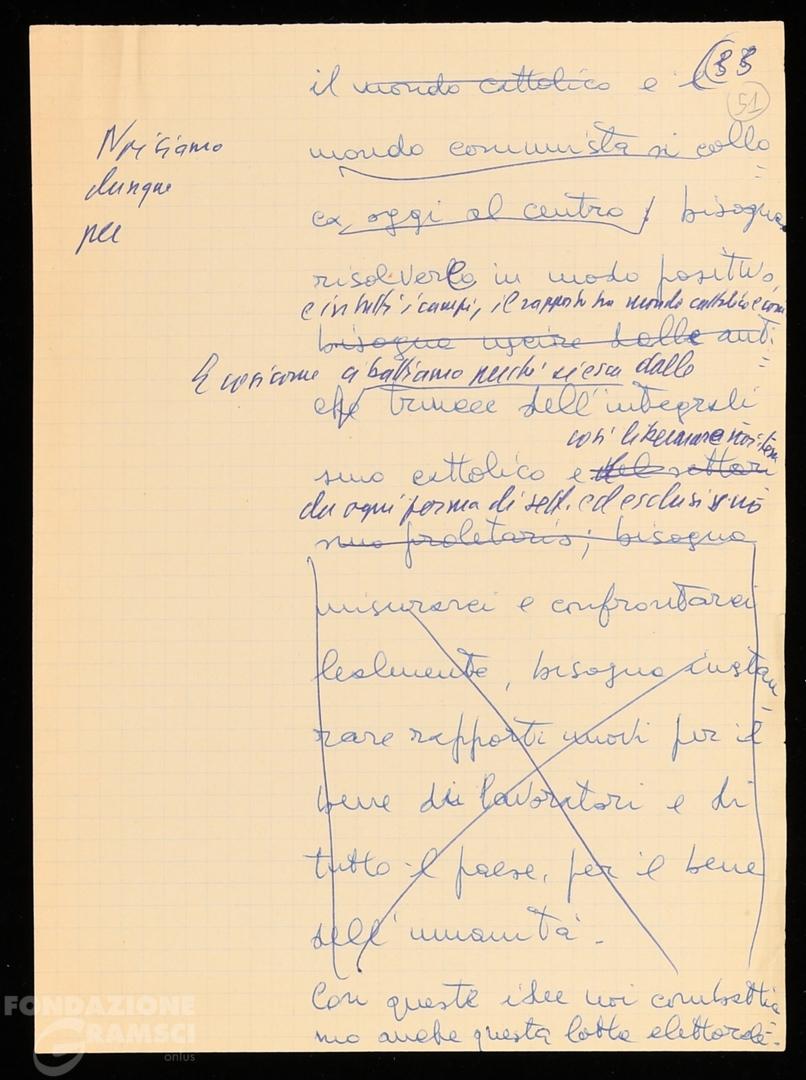 (33
51
il mondo cattolico e il
Noi siamo
dunque
per
mondo comunista si collo
=
ca oggi al centro / bisogna
risolverlo in modo positivo,
e in tutti i campi, il rapporto tra mondo cattolico e
bisogna uscire dalle anti
=
E così come ci battiamo perché si esca dalle
che trincee dell'integrali
così liberiamo
smo cattolico e del settari
da ogni forma di sett. ed esclusivismo
smo proletario; bisogna
misurarci e confrontarci
lealmente, bisogna instau
-
rare rapporti nuovi per il
bene dei lavoratori e di
tutto il paese, per il bene
dell'umanità.
Con queste idee noi combattia
mo anche questa lotta elettorale.
FONDAZIONE
GRAMSCI
onlus